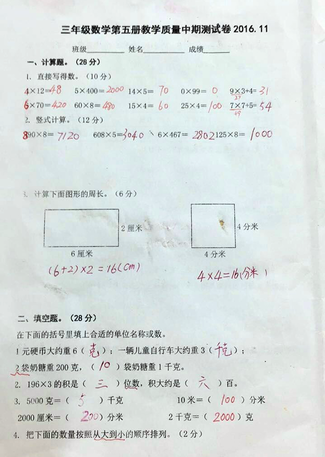 三年级数学第五册教学质量中期测试卷 2016.11
班级 姓名 成绩
一、计算题。（28分）
1. 直接写得数。（10分）
4×12=48 5×400=2000 14×5=70 0×99=0 9×3+4=31
6×70=420 60×8=480 15×4=60 25×4=100 7×7+5=54
2. 竖式计算。（12分）
890×8=7120 608×5=3040 6×467=2802 125×8=1000
计算下面图形的周长。（6分）
2厘米 4分米
6厘米 4分米
(6+2)×2=16(cm) 4×4=16(分米)
二、填空题。（28分）
在下面的括号里填上合适的单位名称或数。
1元硬币大约重6（克）；一辆儿童自行车大约重3（千克）；
2袋奶糖重200克，（10）袋奶糖重1千克。
2. 196×3的积是（三）位数，积大约是（六）百。
3. 5000克=（5）千克 10米=（100）分米
2000厘米=（200）分米 2千克=（2000）克
4. 把下面的数量按照从大到小的顺序排列。（2分）